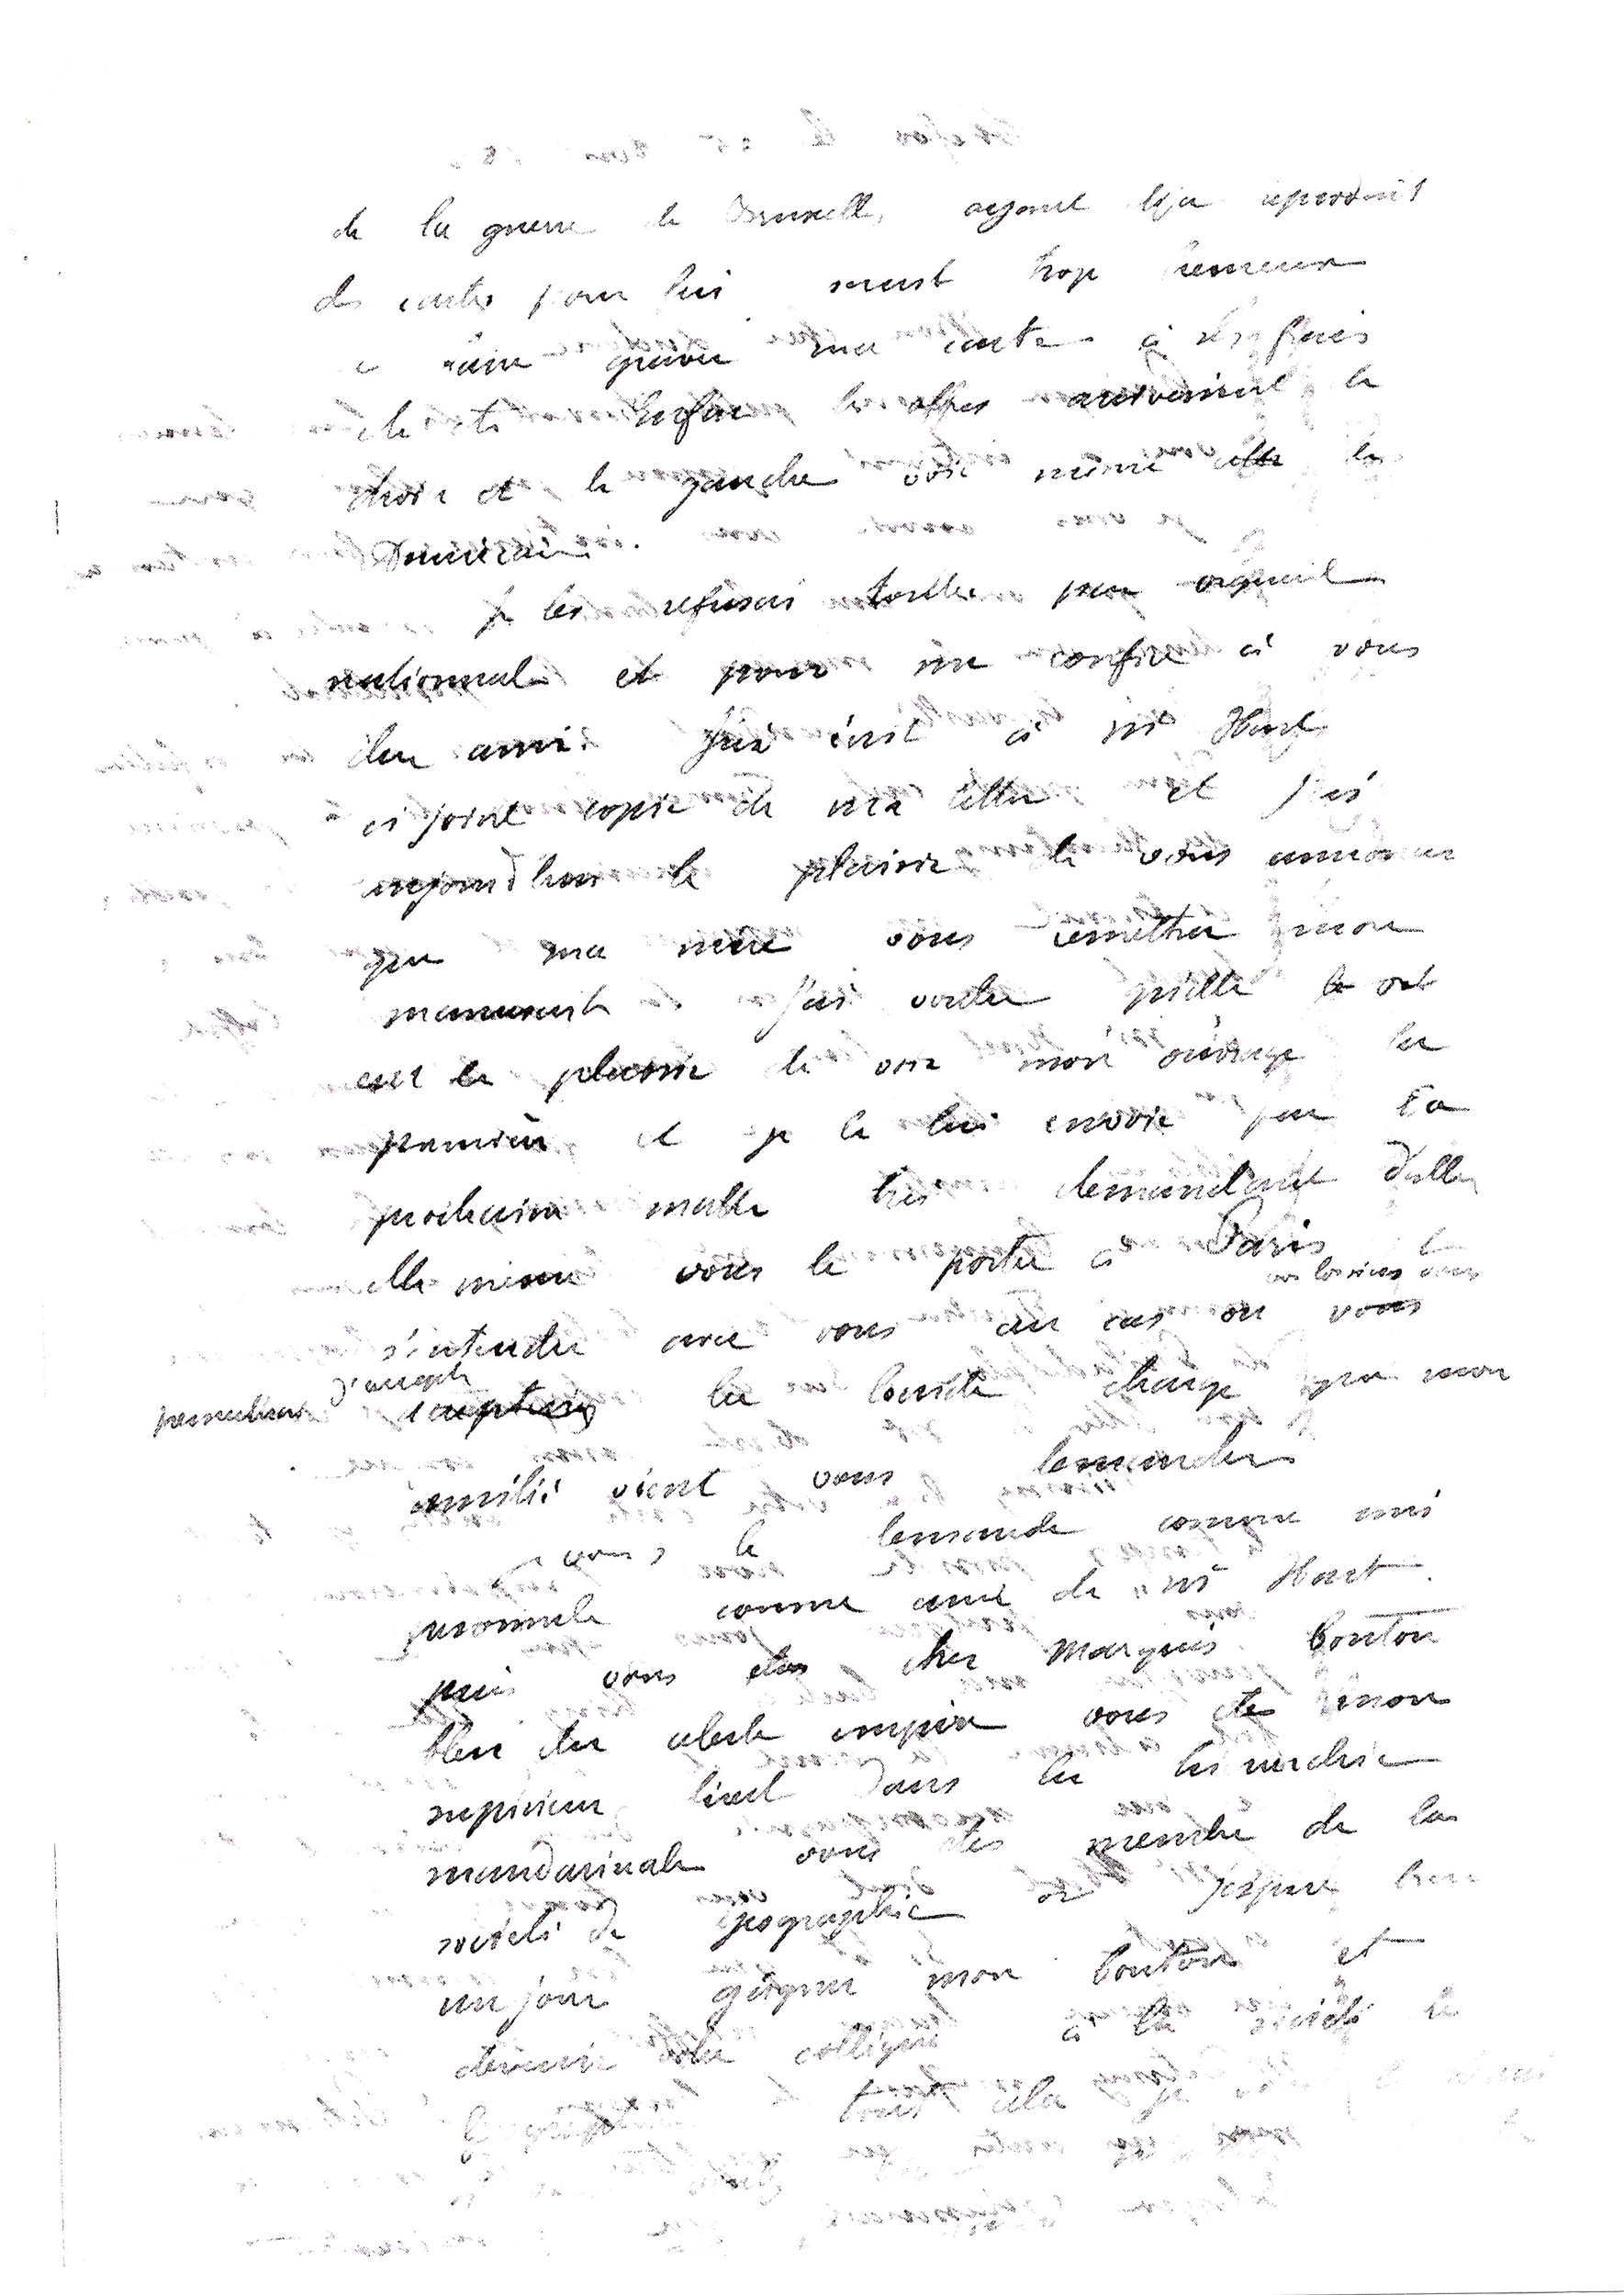 de la guerre de Bruxelles, ayant deja reproduit
des cartes pour lui serait trop heureux
faire graver ma carte à ses frais
Enfin les offres arrivaient de
droite et de gauche voir même les
Dominicains.
Je les refusais toutes par orgueil
national et pour me confier à vous
cher ami. J'ai écrit à Mr Hart
ci joint copie de ma lettre et j'ai
aujourd'hui le plaisir de vous annoncer
que ma mère vous remettra mon
manuscrit j'ai voulu qu'elle
eut le plaisir de voir mon ouvrage la
première et je le lui envoie par la
prochaine malle lui demandant d'aller
elle même vous le porter à Paris
s'entendre avec vous au cas ou vous
d'accepter
accepteriez la lourde charge que mon
amitié vient vous demander
je vous le demande comme ami
personnel comme ami de Mr Hart.
puis vous êtes cher Marquis bouton
bleu du celeste empire vous êtes mon
supérieur direct dans la hierarchie
mandarinale vous êtes membre de la
société de géographie or j'espère bien
un jour gagner mon bouton et
devenir votre collègue à la société de
tout cela je